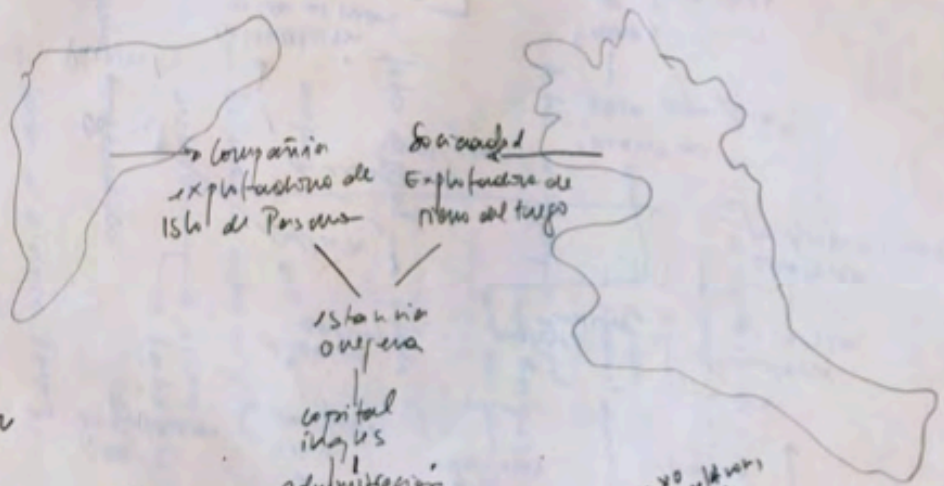 Compañia
explotadora de
Isla de Pascua
Sociedad
Explotadora de
Tierra del Fuego
estancia
ovejera
capital
ingles
administración